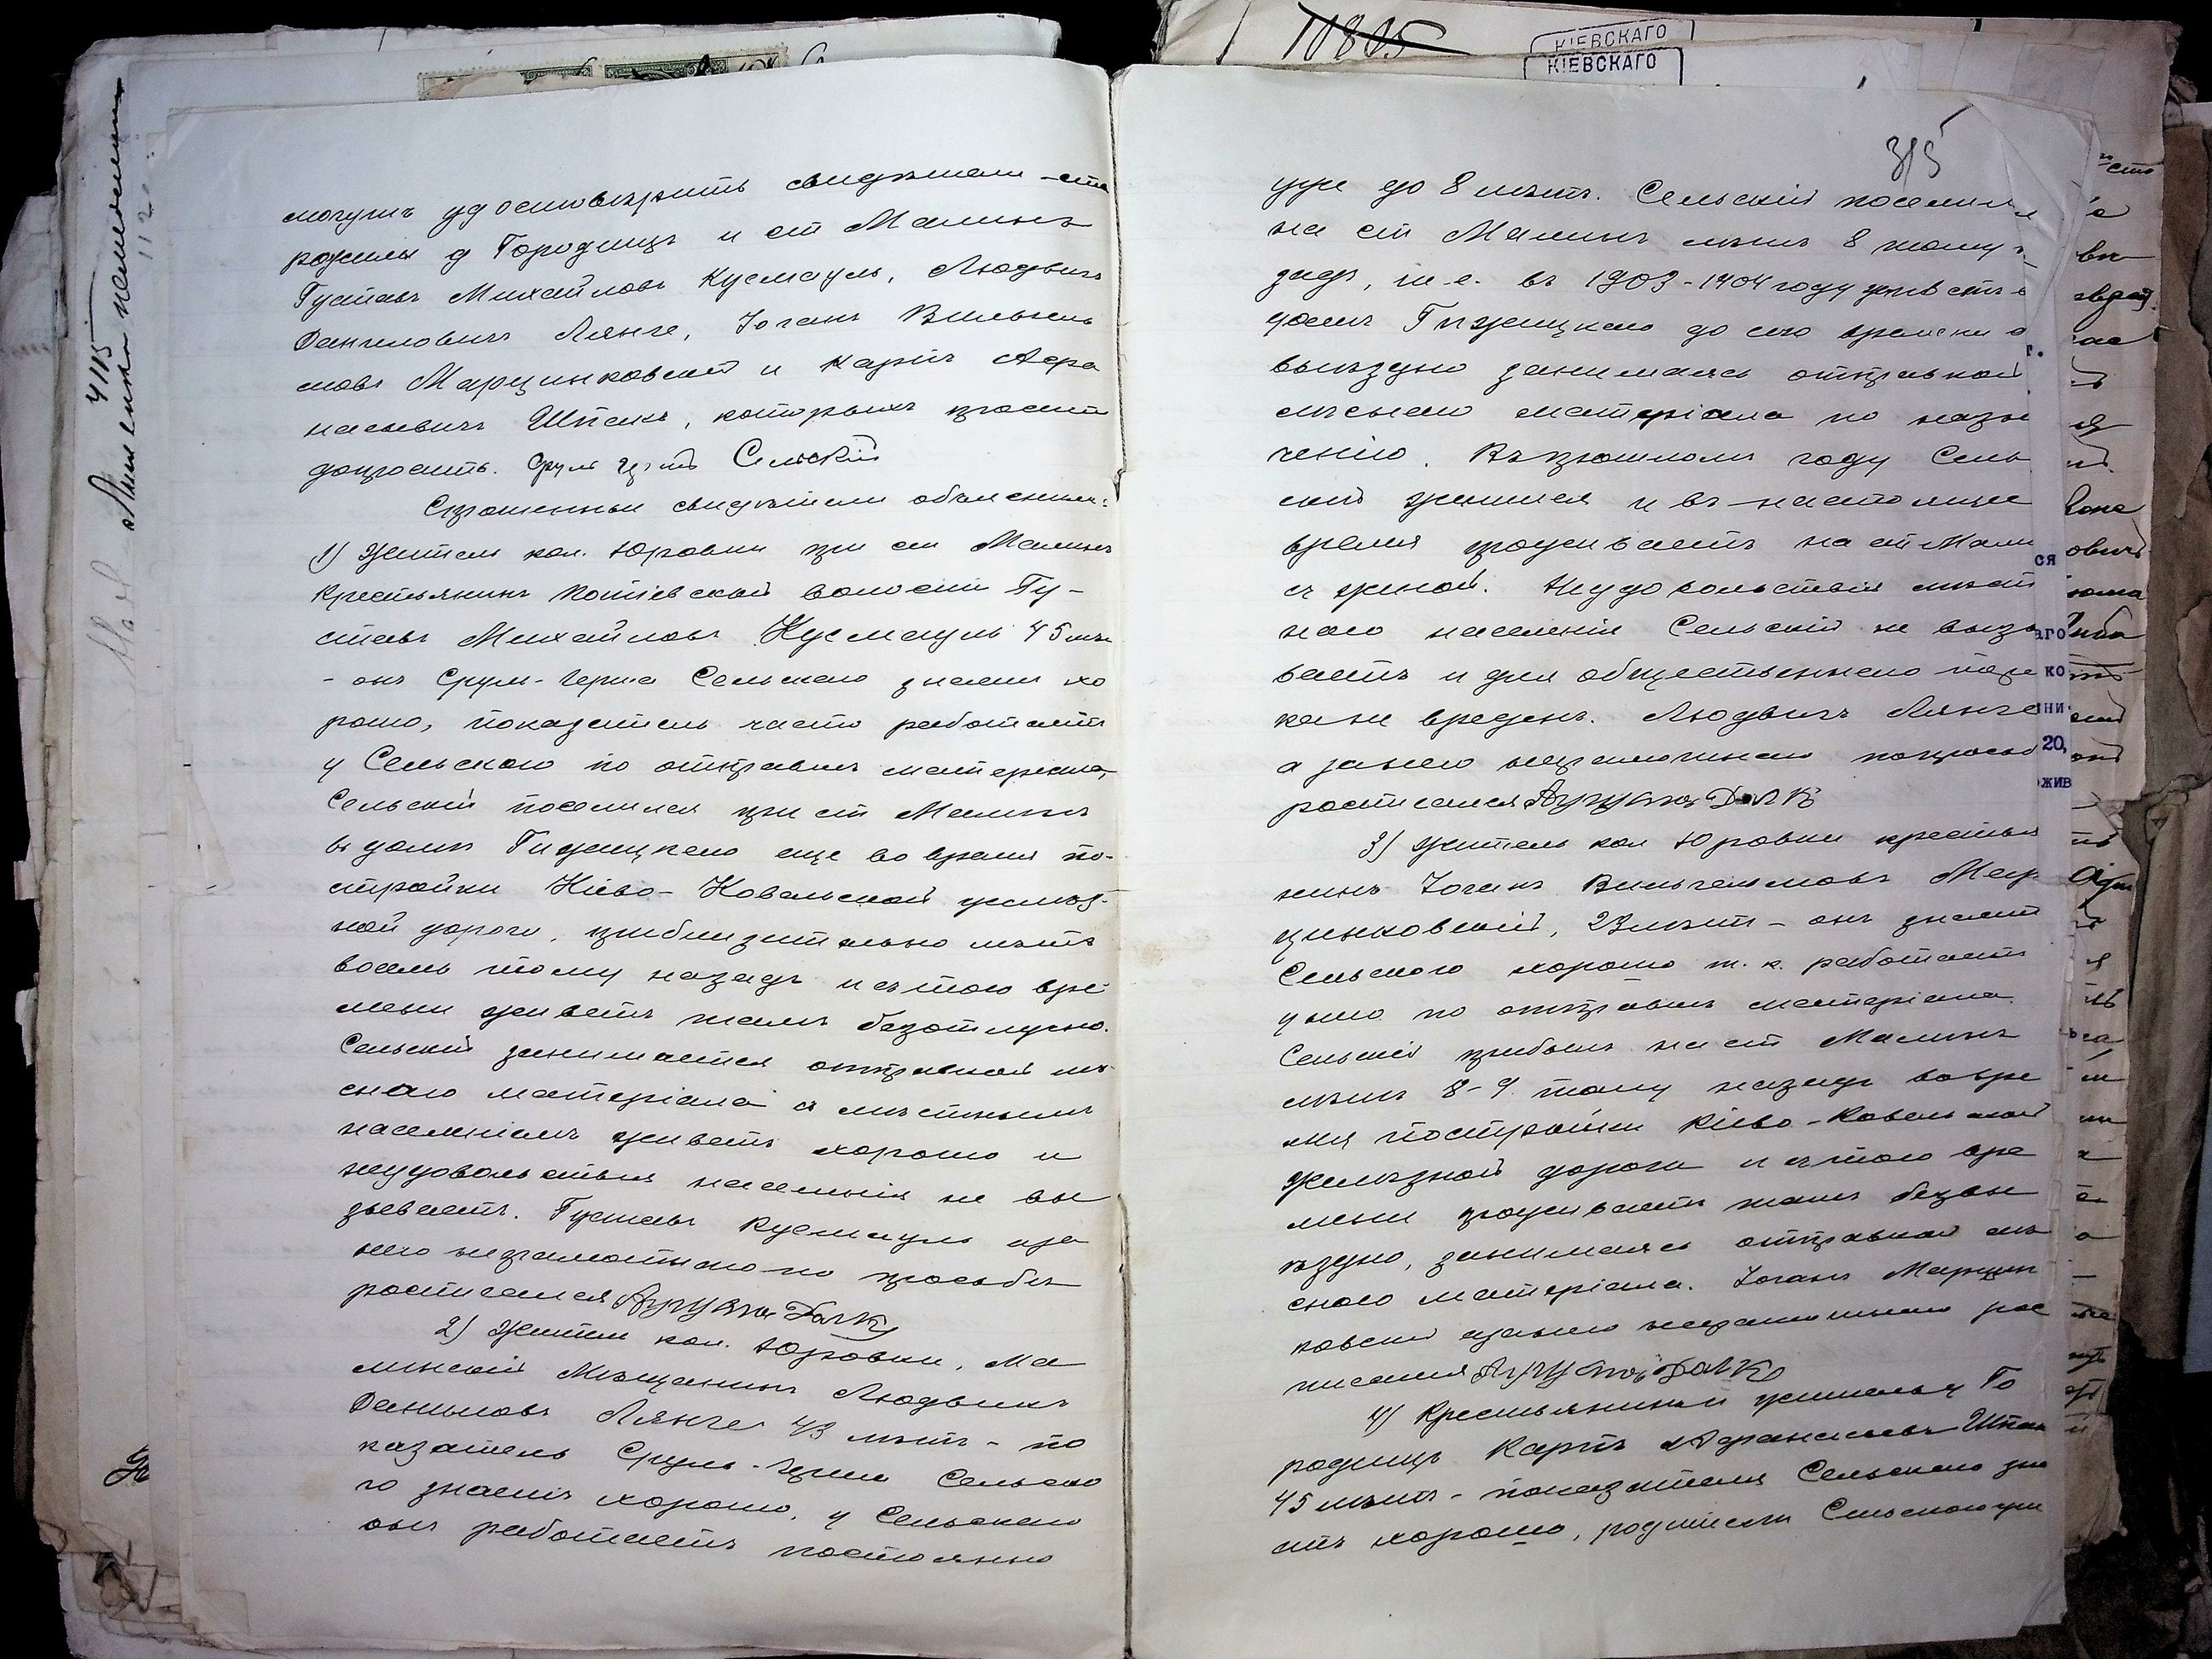 могутъ удостовѣрить свидѣтели – ста
рожилы д Городищъ и ст Малинъ
Густавъ Михайловъ Кусмауль, Людвигъ
Даниловичъ Лянге, Іоганъ Вильгель
мовъ Марцинковскій и Карпъ Афа
насьевичъ Шпакъ, которыхъ прошу
допросить. Сруль Сельскій
Спрошенные свидѣтели объяснили:
1) Житель кол. Юровки при ст Малинъ
Крестьянинъ Потіевской волости Гу-
ставъ Михайловъ Кусмауль 45 лѣтъ
– онъ Сруль-Герша Сельскаго знаетъ хо
рошо, показатель часто работаетъ
у Сельскаго по отправкѣ матеріала,
Сельскій поселился при ст Малинъ
въ домѣ Гиждицкаго еще во время по-
стройки Кіево-Ковельской желѣз-
ной дороги, приблизительно лѣтъ
восемь тому назадъ и съ того вре-
мени живетъ тамъ безотлучно.
Сельскій занимается отправкой лѣ-
снаго матеріала съ мѣстнымъ
населеніемъ живетъ хорошо и
неудовольствія населенія не вы
зываетъ. Густавъ Кусмауль а за
него неграмотнаго по просьбѣ
росписался
2) Житель кол. Юровки, Ма
линскій Мѣщанинъ Людвигъ
Даниловъ Лянге 43 лѣтъ – по
казатель Сруль-Герша Сельска
го знаетъ хорошо, у Сельскаго
онъ работаетъ постоянно
315
уже до 8 лѣтъ. Сельскій поселился
на ст Малинъ лѣтъ 8 тому
задъ, т.е. въ 1903-1904 году живетъ въ
домѣ Гиждицкаго до сего времени
выѣздно занимаясь отправкой
лѣсного матеріала по назна
ченію. Въ прошломъ году Сель
скій женился и въ настоящее
время проживаетъ на ст Мали
съ женой. Неудовольствія мѣст
наго населенія Сельскій не вызы
ваетъ и для общественнаго поря
ка не вреденъ. Людвигъ Лянге
а за него неграмотнаго по просьбѣ
росписался
3) Житель кол Юровки крестья
нинъ Іоганъ Вильгельмовъ Мар
цинковскій, 23 лѣтъ – онъ знаетъ
Сельскаго хорошо т. к. работаетъ
у него по отправкѣ матеріала.
Сельскій прибылъ на ст Малинъ
лѣтъ 8-9 тому назадъ во вре
мя постройки Кіево-Ковельской
желѣзной дороги и съ того вре
мени проживаетъ тамъ безвы
ѣздно, занимаясь отправкой лѣ
сного матеріала. Іоганъ Марцин
ковскій а за него неграмотнаго рос
писался
4) Крестьянинъ и житель д Го
родищъ Карпъ Афанасьевъ Шпакъ
45 лѣтъ – показатель Сельскаго зна
етъ хорошо, родители Сельскаго
10805
КІЕВСКАГО
КІЕВСКАГО
4115